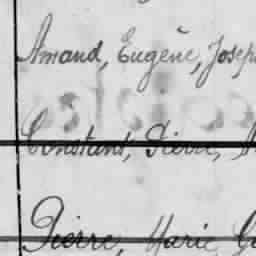 Amand, Eugène, Joseph
Constant, Pierre,
Pierre, Marie